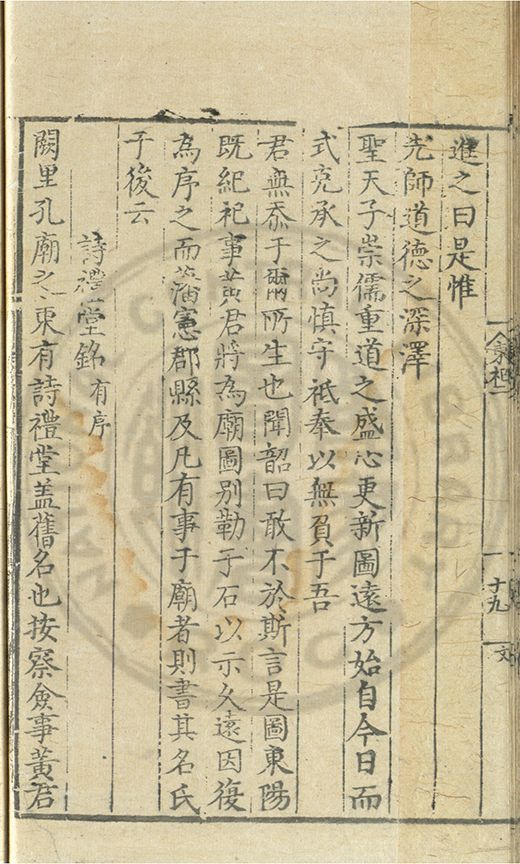 進之曰是惟
先師道德之深澤
聖天子崇儒重道之盛心更新圖遠方始自今日而
式克承之尚慎守祗奉以無負于吾
君無忝于爾所生也聞韶曰敢不於斯言是圖東陽
既紀祀事黃君將為廟圖別勒于石以示久遠因復
為序之而藩憲郡縣及凡有事于廟者則書其名氏
于後云
詩禮堂銘有序
闕里孔廟之東有詩禮堂盖舊名也按察僉事黃君
十九
文